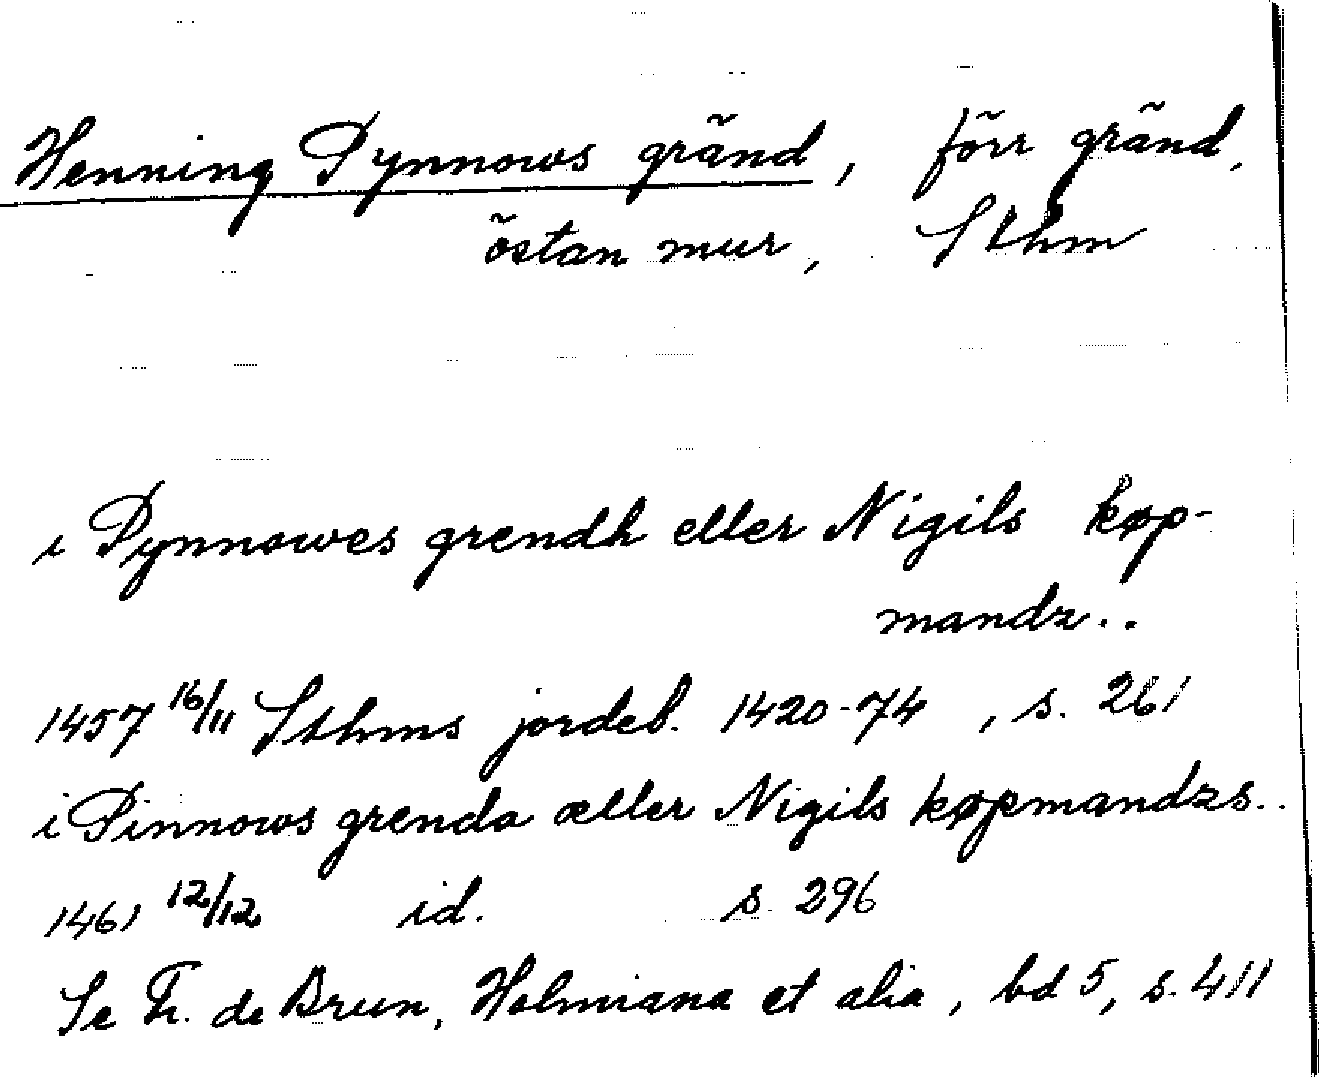 Henning Pynnows gränd, förr gränd,
östan mur, Sthm
i Pynnowes grendh eller Nigils køp-
mandz..
1457 16/11 Sthms jordeb. 1420-74, s. 261
i Pinnows grenda æller Nigils køpmandzs..
1461 12/12 id. s 296
Se Fr. de Brun, Holmiana et alia, bd 5, s. 411